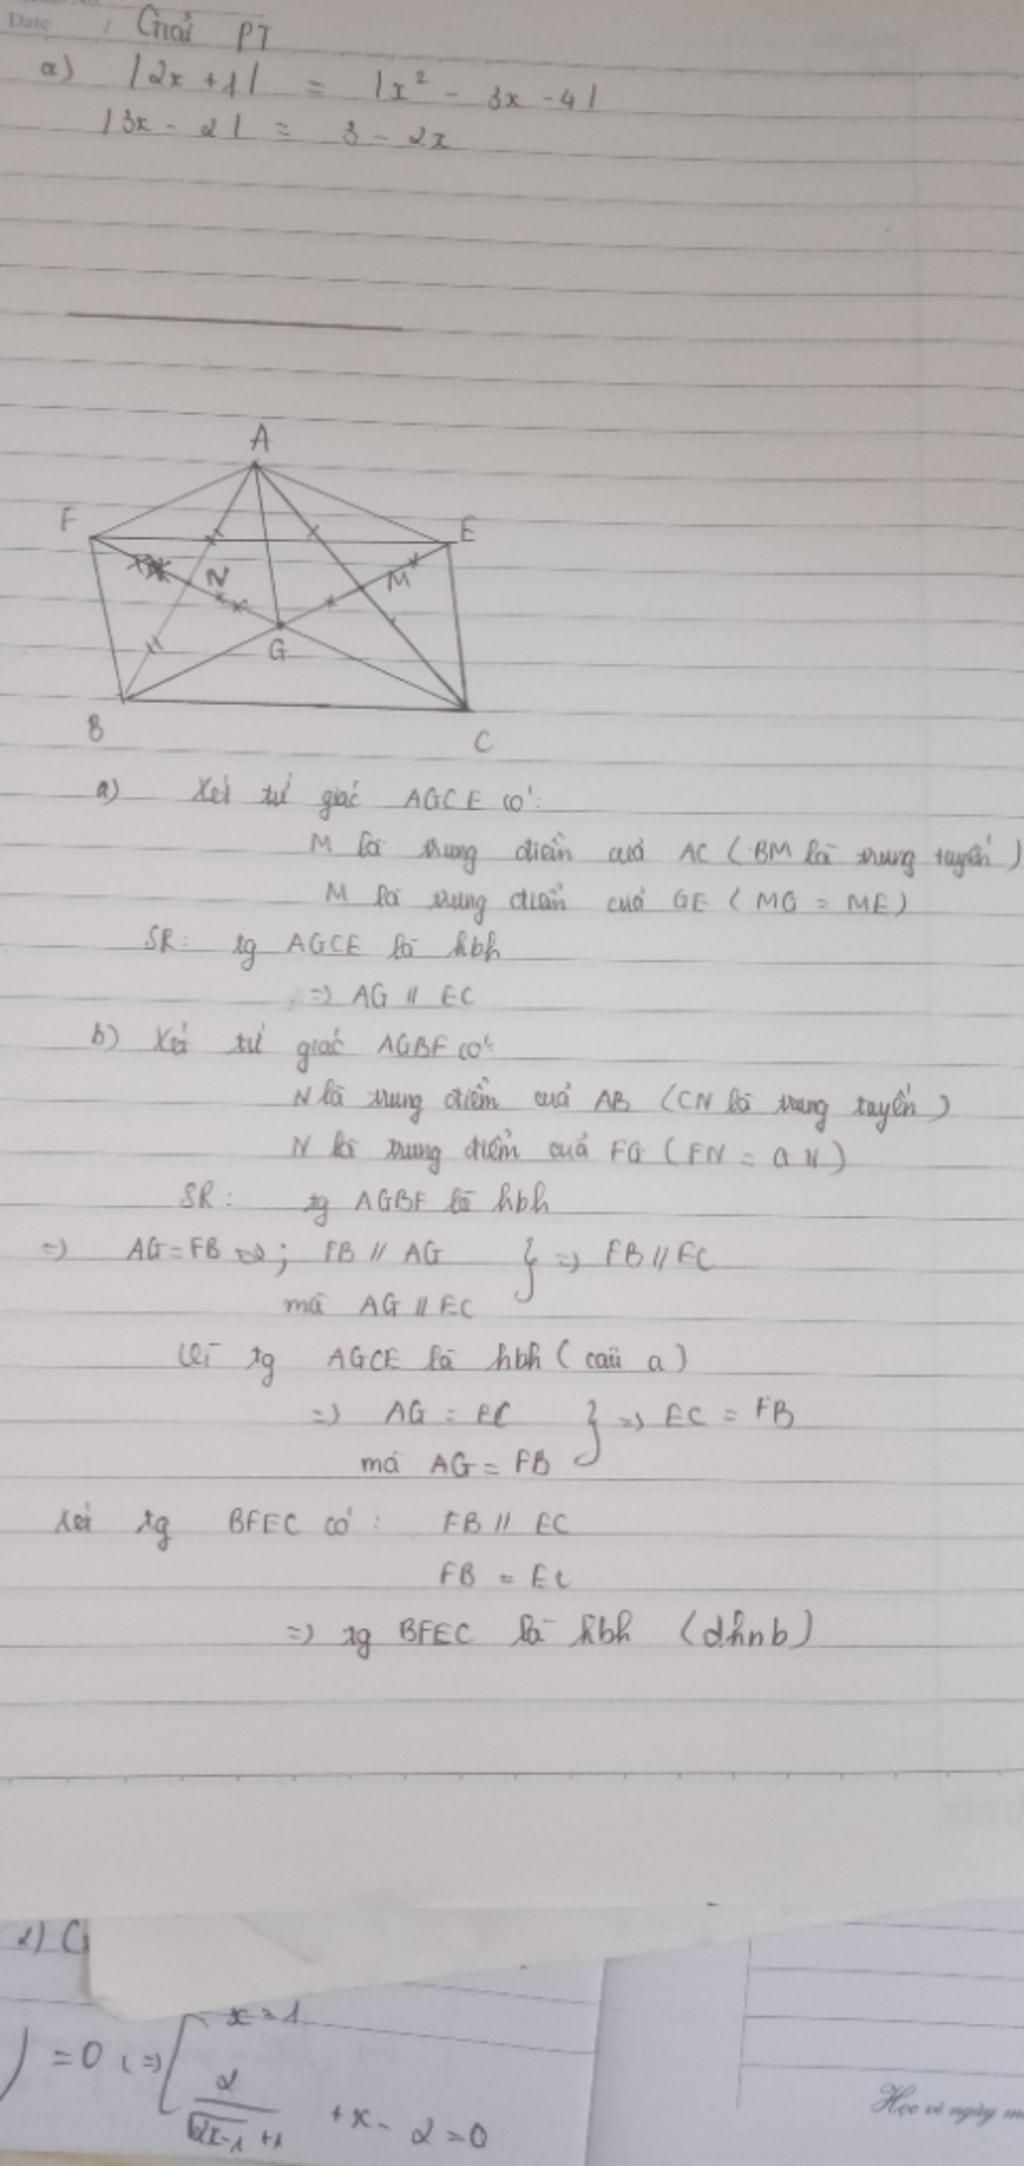 Date / Giải PT
a) |2x + 1| = |x² - 3x - 4|
|3x - 2| = 3 - 2x
A
F E
N M
G
B C
a) Xét tứ giác AGCE có:
M là trung điểm của AC (BM là trung tuyến)
M là trung điểm của GE (MG = ME)
SR: tg AGCE là hbh
=> AG // EC
b) Xét tứ giác AGBF có:
N là trung điểm của AB (CN là trung tuyến)
N là trung điểm của FG (FN = GN)
SR: tg AGBF là hbh
=> AG = FB ; FB // AG } => FB // EC
mà AG // EC
Vì tg AGCE là hbh (câu a)
=> AG = EC } => EC = FB
mà AG = FB
Xét tg BFEC có: FB // EC
FB = EC
=> tg BFEC là hbh (dhnb)
2) G
x = 1
) = 0 (=) [
2 / √2x-1 + 1 + x - 2 = 0
Học vì ngày m